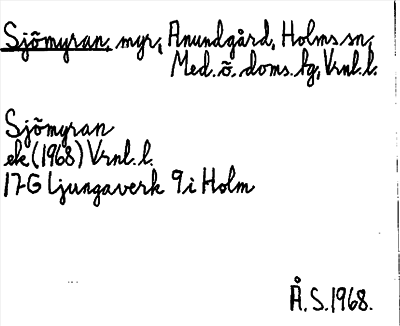 Sjömyran, myr, Anundgård, Holms sn,
Med. ö. doms. hg, Vrnl. l.
Sjömyran
ek (1968) Vrnl. l.
17G Ljungaverk 9 i Holm
Å. S. 1968.